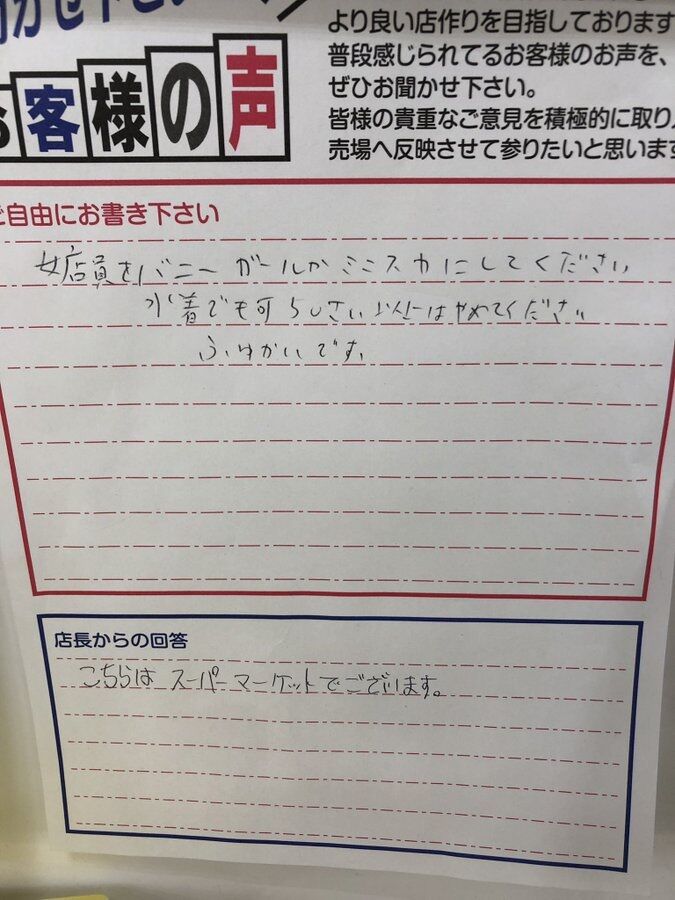 かせ下さい
より良い店作りを目指しております
普段感じられてるお客様のお声を、
ぜひお聞かせ下さい。
皆様の貴重なご意見を積極的に取り入
売場へ反映させて参りたいと思います
お客様の声
ご自由にお書き下さい
女店員をバニーガールかミニスカにしてください
水着でも可 らしさい 以上はやめてください
ふゆかいです。
店長からの回答
こちらはスーパーマーケットでございます。